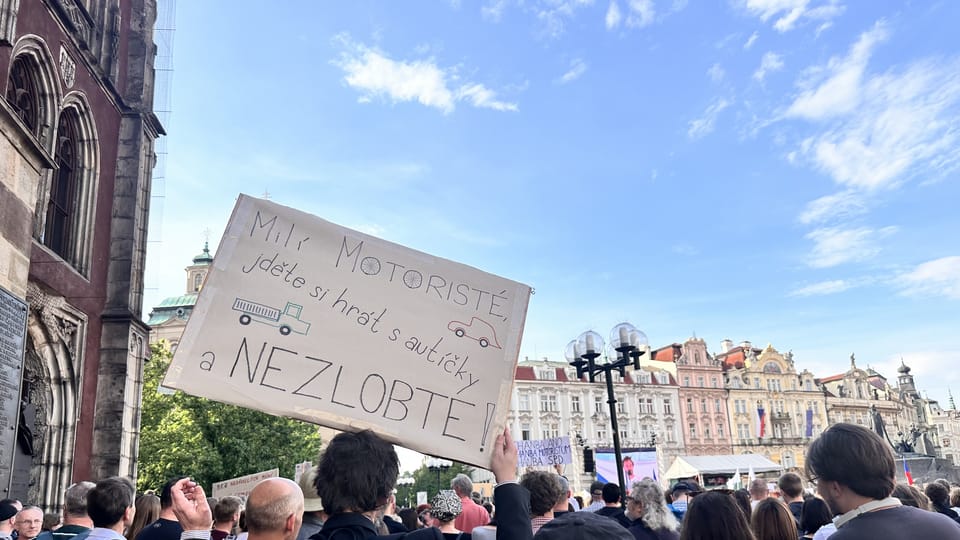 Milí MOTORISTÉ,
jděte si hrát s autíčky
a NEZLOBTE!